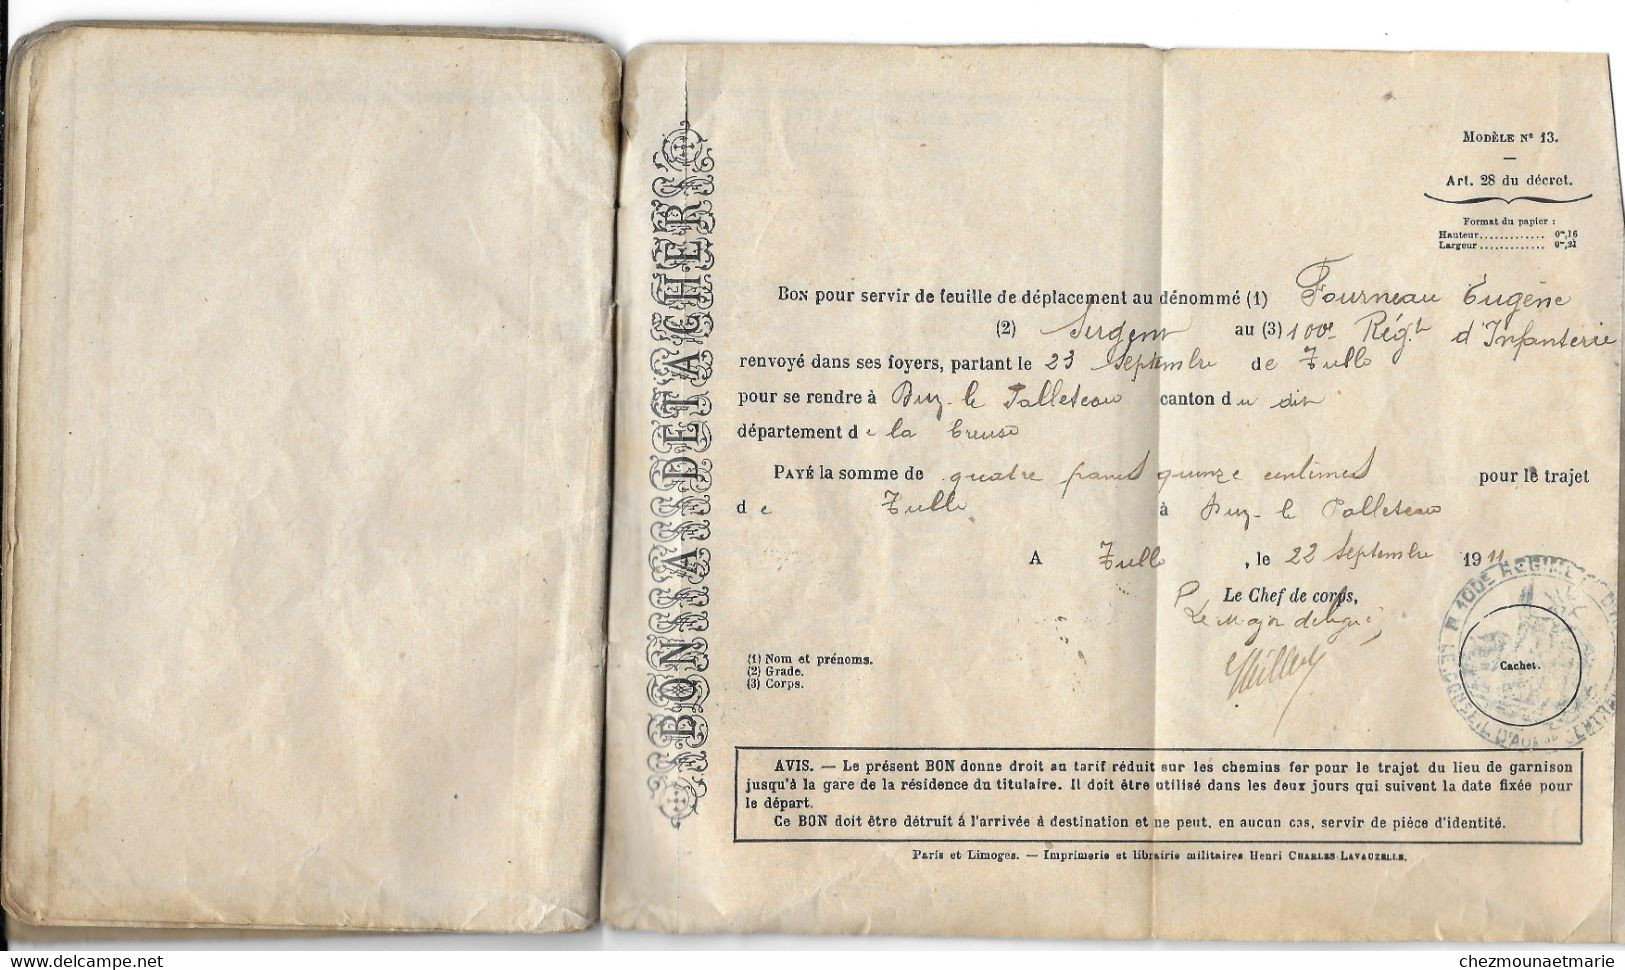 BONS A DÉTACHER
MODÈLE N° 13.
Art. 28 du décret.
Format du papier :
Hauteur............. 0m,16
Largeur............. 0m,21
BON pour servir de feuille de déplacement au dénommé (1) Fourneau Eugène
(2) Sergent au (3) 100e Régt d'Infanterie
renvoyé dans ses foyers, partant le 23 Septembre de Tulle
pour se rendre à canton du dit
département de la Creuse
PAYÉ la somme de quatre francs quinze centimes pour le trajet
de Tulle à
A Tulle, le 22 Septembre 1911
P Le Chef de corps,
Le Major délégué,
(1) Nom et prénoms.
(2) Grade.
(3) Corps.
100e REGIMENT
LE CONSEIL D'ADMon CENTRAL
Cachet.
AVIS. — Le présent BON donne droit au tarif réduit sur les chemins fer pour le trajet du lieu de garnison
jusqu'à la gare de la résidence du titulaire. Il doit être utilisé dans les deux jours qui suivent la date fixée pour
le départ.
Ce BON doit être détruit á l'arrivée à destination et ne peut, en aucun cas, servir de pièce d'identité.
Paris et Limoges. — Imprimerie et librairie militaires Henri CHARLES-LAVAUZELLE.
delcampe.net
chezmounaetmarie